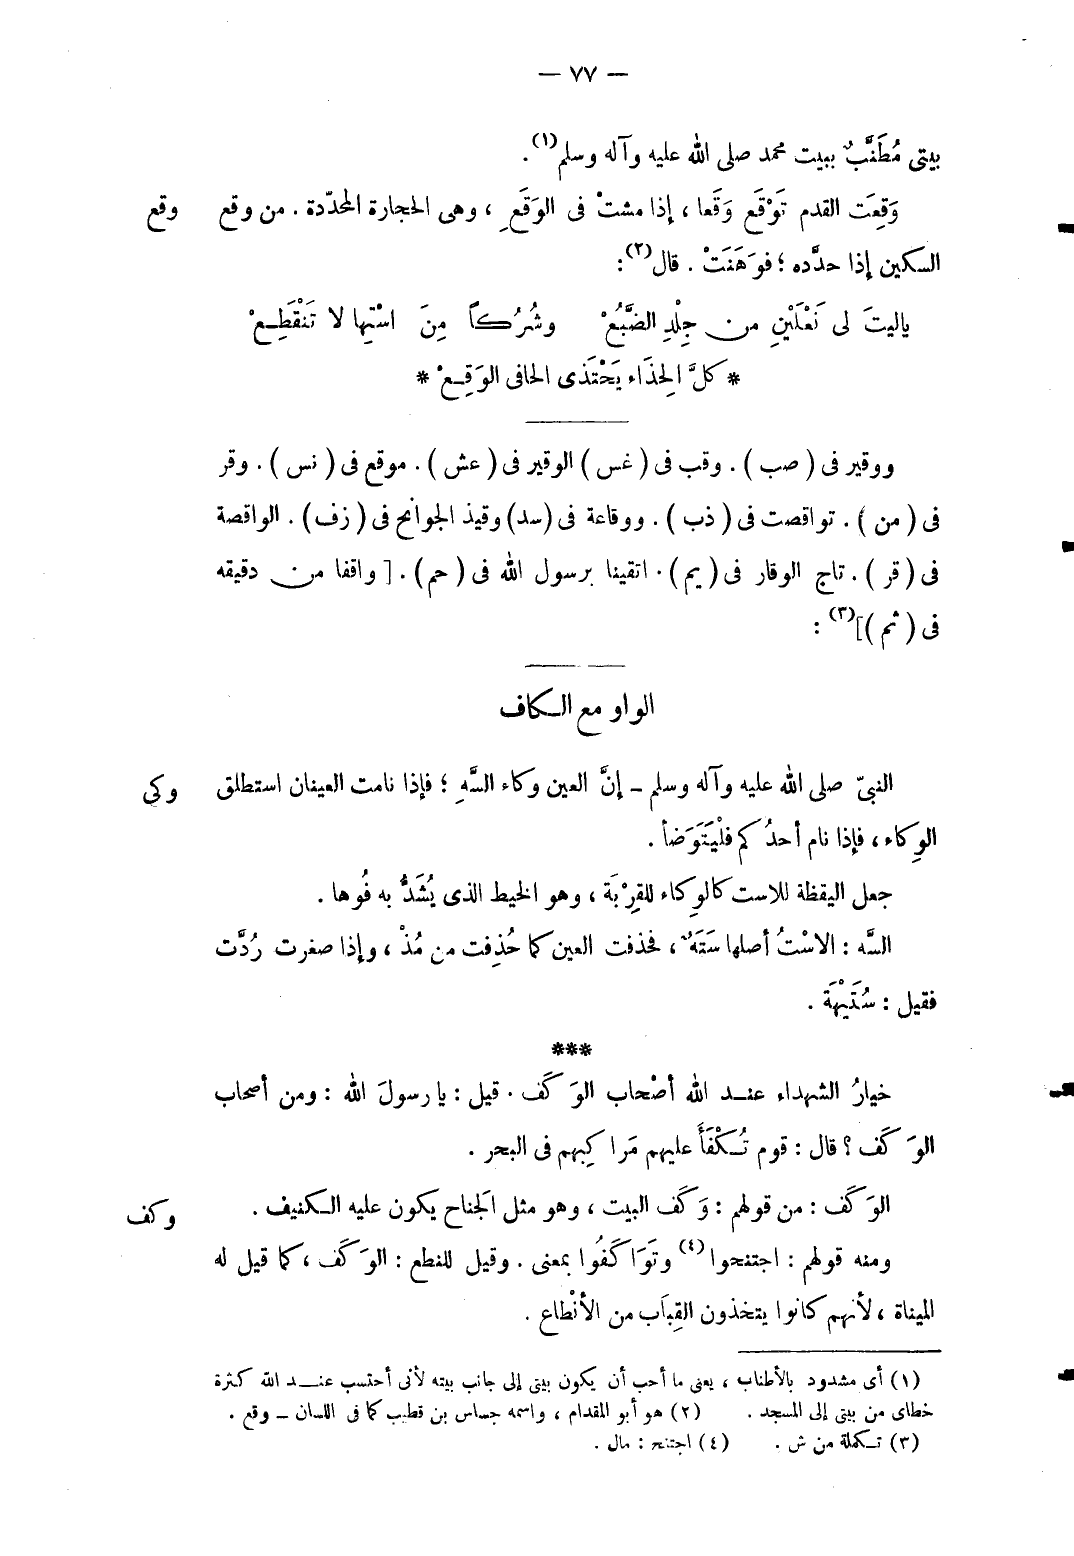 — ٧٧ —
بيتى مُطَنَّبٌ ببيت محمد صلى الله عليه وآله وسلم(١) .
وَقِعَت القدم تَوْقَع وَقَعا ، إذا مشتْ فى الوَقَعِ ، وهى الحجارة المحدّدة . من وقع وقع
السكين إذا حدَّده ؛ فوَهَنَتْ . قال(٢) :
ياليتَ لى نَعْلَيْنِ من جِلْدِ الضَّبُعْ وشُرُكاً مِنَ اسْتِها لا تَنْقَطِعْ
* كلَّ الحِذَاء يَحْتَذى الحافى الوَقِعْ *
ووقير فى ( صب ) . وقب فى ( غس ) الوقير فى ( عش ) . موقع فى ( نس ) . وقر
فى ( من ) . تواقصت فى ( ذب ) . ووقاعة فى (سد) وقيذ الجوانح فى ( زف ) . الواقصة
فى ( قر ) . تاج الوقار فى ( يم ) . اتقينا برسول الله فى ( حم ) . [ واقفا من دقيقه
فى ( ثم )](٣) :
الواو مع الكاف
النبىّ صلى الله عليه وآله وسلم – إنَّ العين وكاء السَّهِ ؛ فإذا نامت العينان استطلق وكى
الوِكاء ، فإذا نام أحدُكم فلْيَتَوَضأ .
جعل اليقظة للاست كالوِكاء للقِرْبَة ، وهو الخيط الذى يُشَدُّ به فُوها .
السَّه : الاسْتُ أصلها سَتَهٌ ، فحذفت العين كما حُذِفت من مُذْ ، وإذا صغرت رُدَّت
فقيل : سُتَيْهَة .
***
خيارُ الشهداء عند الله أصْحاب الوَكَف . قيل : يا رسولَ الله : ومن أصحاب
الوَكَف ؟ قال : قوم تُكْفَأَ عليهم مَراكِبهم فى البحر .
الوَكَف : من قولهم : وَكَف البيت ، وهو مثل الجَناح يكون عليه الكنيف . وكف
ومنه قولهم : اجتنحوا(٤) وتَوَاكَفُوا بمعنى . وقيل للنطع : الوَكَف ، كما قيل له
الميناة ، لأنهم كانوا يتخذون القِبَاب من الأنْطاع .
(١) أى مشدود بالأطناب ، يعنى ما أحب أن يكون بيتى إلى جانب بيته لأنى أحتسب عند الله كثرة
خطاى من بيتى إلى المسجد . (٢) هو أبو المقدام ، واسمه جساس بن قطيب كما فى اللسان – وقع .
(٣) تكملة من ش . (٤) اجتنح : مال .